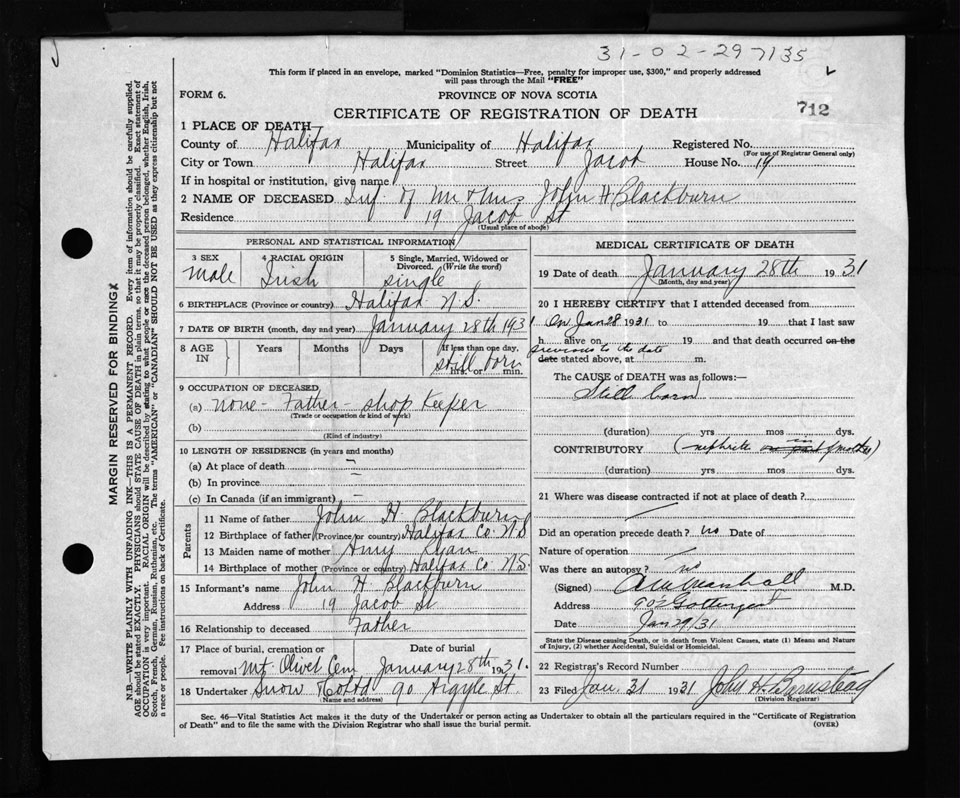 31-02-297135
This form if placed in an envelope, marked "Dominion Statistics—Free, penalty for improper use, $300," and properly addressed
will pass through the Mail "FREE"
FORM 6.
PROVINCE OF NOVA SCOTIA
CERTIFICATE OF REGISTRATION OF DEATH
712
1 PLACE OF DEATH
County of Halifax Municipality of Halifax Registered No.
(For use of Registrar General only)
City or Town Halifax Street Jacob House No. 19
If in hospital or institution, give name
2 NAME OF DECEASED Inf. of Mr. & Mrs. John H Blackburn
Residence 19 Jacob St
(Usual place of abode)
PERSONAL AND STATISTICAL INFORMATION
3 SEX male
4 RACIAL ORIGIN Irish
5 Single, Married, Widowed or Divorced. (Write the word) single
6 BIRTHPLACE (Province or country) Halifax N.S.
7 DATE OF BIRTH (month, day and year) January 28th 1931
8 AGE IN Years Months Days If less than one day, hrs. or min. still born
9 OCCUPATION OF DECEASED,
(a) none - Father - shop keeper
(Trade or occupation or kind of work)
(b)
(Kind of industry)
10 LENGTH OF RESIDENCE (in years and months)
(a) At place of death —
(b) In province —
(c) In Canada (if an immigrant) —
Parents
11 Name of father John H. Blackburn
12 Birthplace of father (Province or country) Halifax Co. N.S
13 Maiden name of mother Amy Ryan
14 Birthplace of mother (Province or country) Halifax Co. N.S.
15 Informant's name John H. Blackburn
Address 19 Jacob St
16 Relationship to deceased Father
17 Place of burial, cremation or removal Mt. Olivet Cem Date of burial January 28th 1931.
18 Undertaker Snow & Co Ltd 90 Argyle St.
(Name and address)
MEDICAL CERTIFICATE OF DEATH
19 Date of death January 28th 1931
(Month, day and year)
20 I HEREBY CERTIFY that I attended deceased from
On Jan 28 1931 to 19 that I last saw
h alive on 19 and that death occurred on the
previous to the date
date stated above, at m.
The CAUSE of DEATH was as follows:—
Still born
(duration) yrs mos dys.
CONTRIBUTORY (nephritis in mother)
(duration) yrs mos dys.
21 Where was disease contracted if not at place of death?
Did an operation precede death? no Date of
Nature of operation
Was there an autopsy? no
(Signed) Marshall M.D.
Address 90½ Gottingen St
Date Jan 29/31
State the Disease causing Death, or in death from Violent Causes, state (1) Means and Nature
of Injury, (2) whether Accidental, Suicidal or Homicidal.
22 Registrar's Record Number
23 Filed Jan. 31 1931 John H. Barnstead
(Division Registrar)
Sec. 46—Vital Statistics Act makes it the duty of the Undertaker or person acting as Undertaker to obtain all the particulars required in the "Certificate of Registration
of Death" and to file the same with the Division Registrar who shall issue the burial permit. (OVER)
MARGIN RESERVED FOR BINDING
N.B.—WRITE PLAINLY WITH UNFADING INK—THIS IS A PERMANENT RECORD. Every item of information should be carefully supplied.
AGE should be stated EXACTLY. PHYSICIANS should STATE CAUSE OF DEATH in plain terms, so that it may be properly classified. Exact statement of
OCCUPATION is very important. RACIAL ORIGIN will be described by stating to what people or race the deceased person belonged, whether English, Irish,
Scotch, French, German, Russian, Ruthenian, etc. The terms "AMERICAN" or "CANADIAN" SHOULD NOT BE USED as they express citizenship but not
a race or people. Fee instructions on back of Certificate.